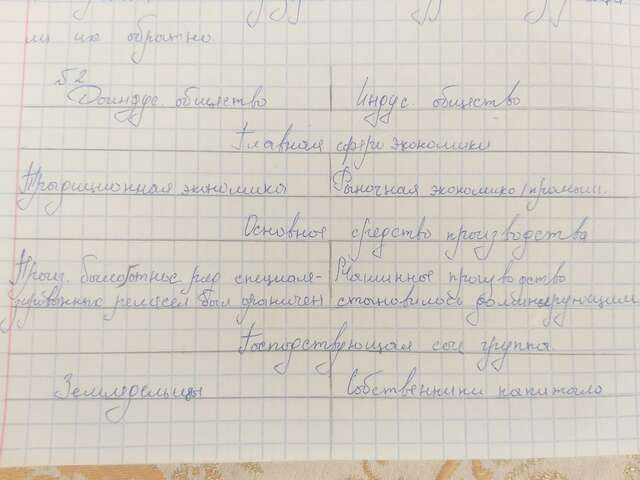 ли их обратно.
§2
Доиндус. общество Индус. общество
Главная сфера экономики
Традиционная экономика Рыночная экономика/промышл.
Основное средство производства
Произ. было ряд специали-
зированных ремёсел был ограничен
Машинное производство
становилось доминирующим
Господствующая соц группа
Земледельцы Собственники капитала